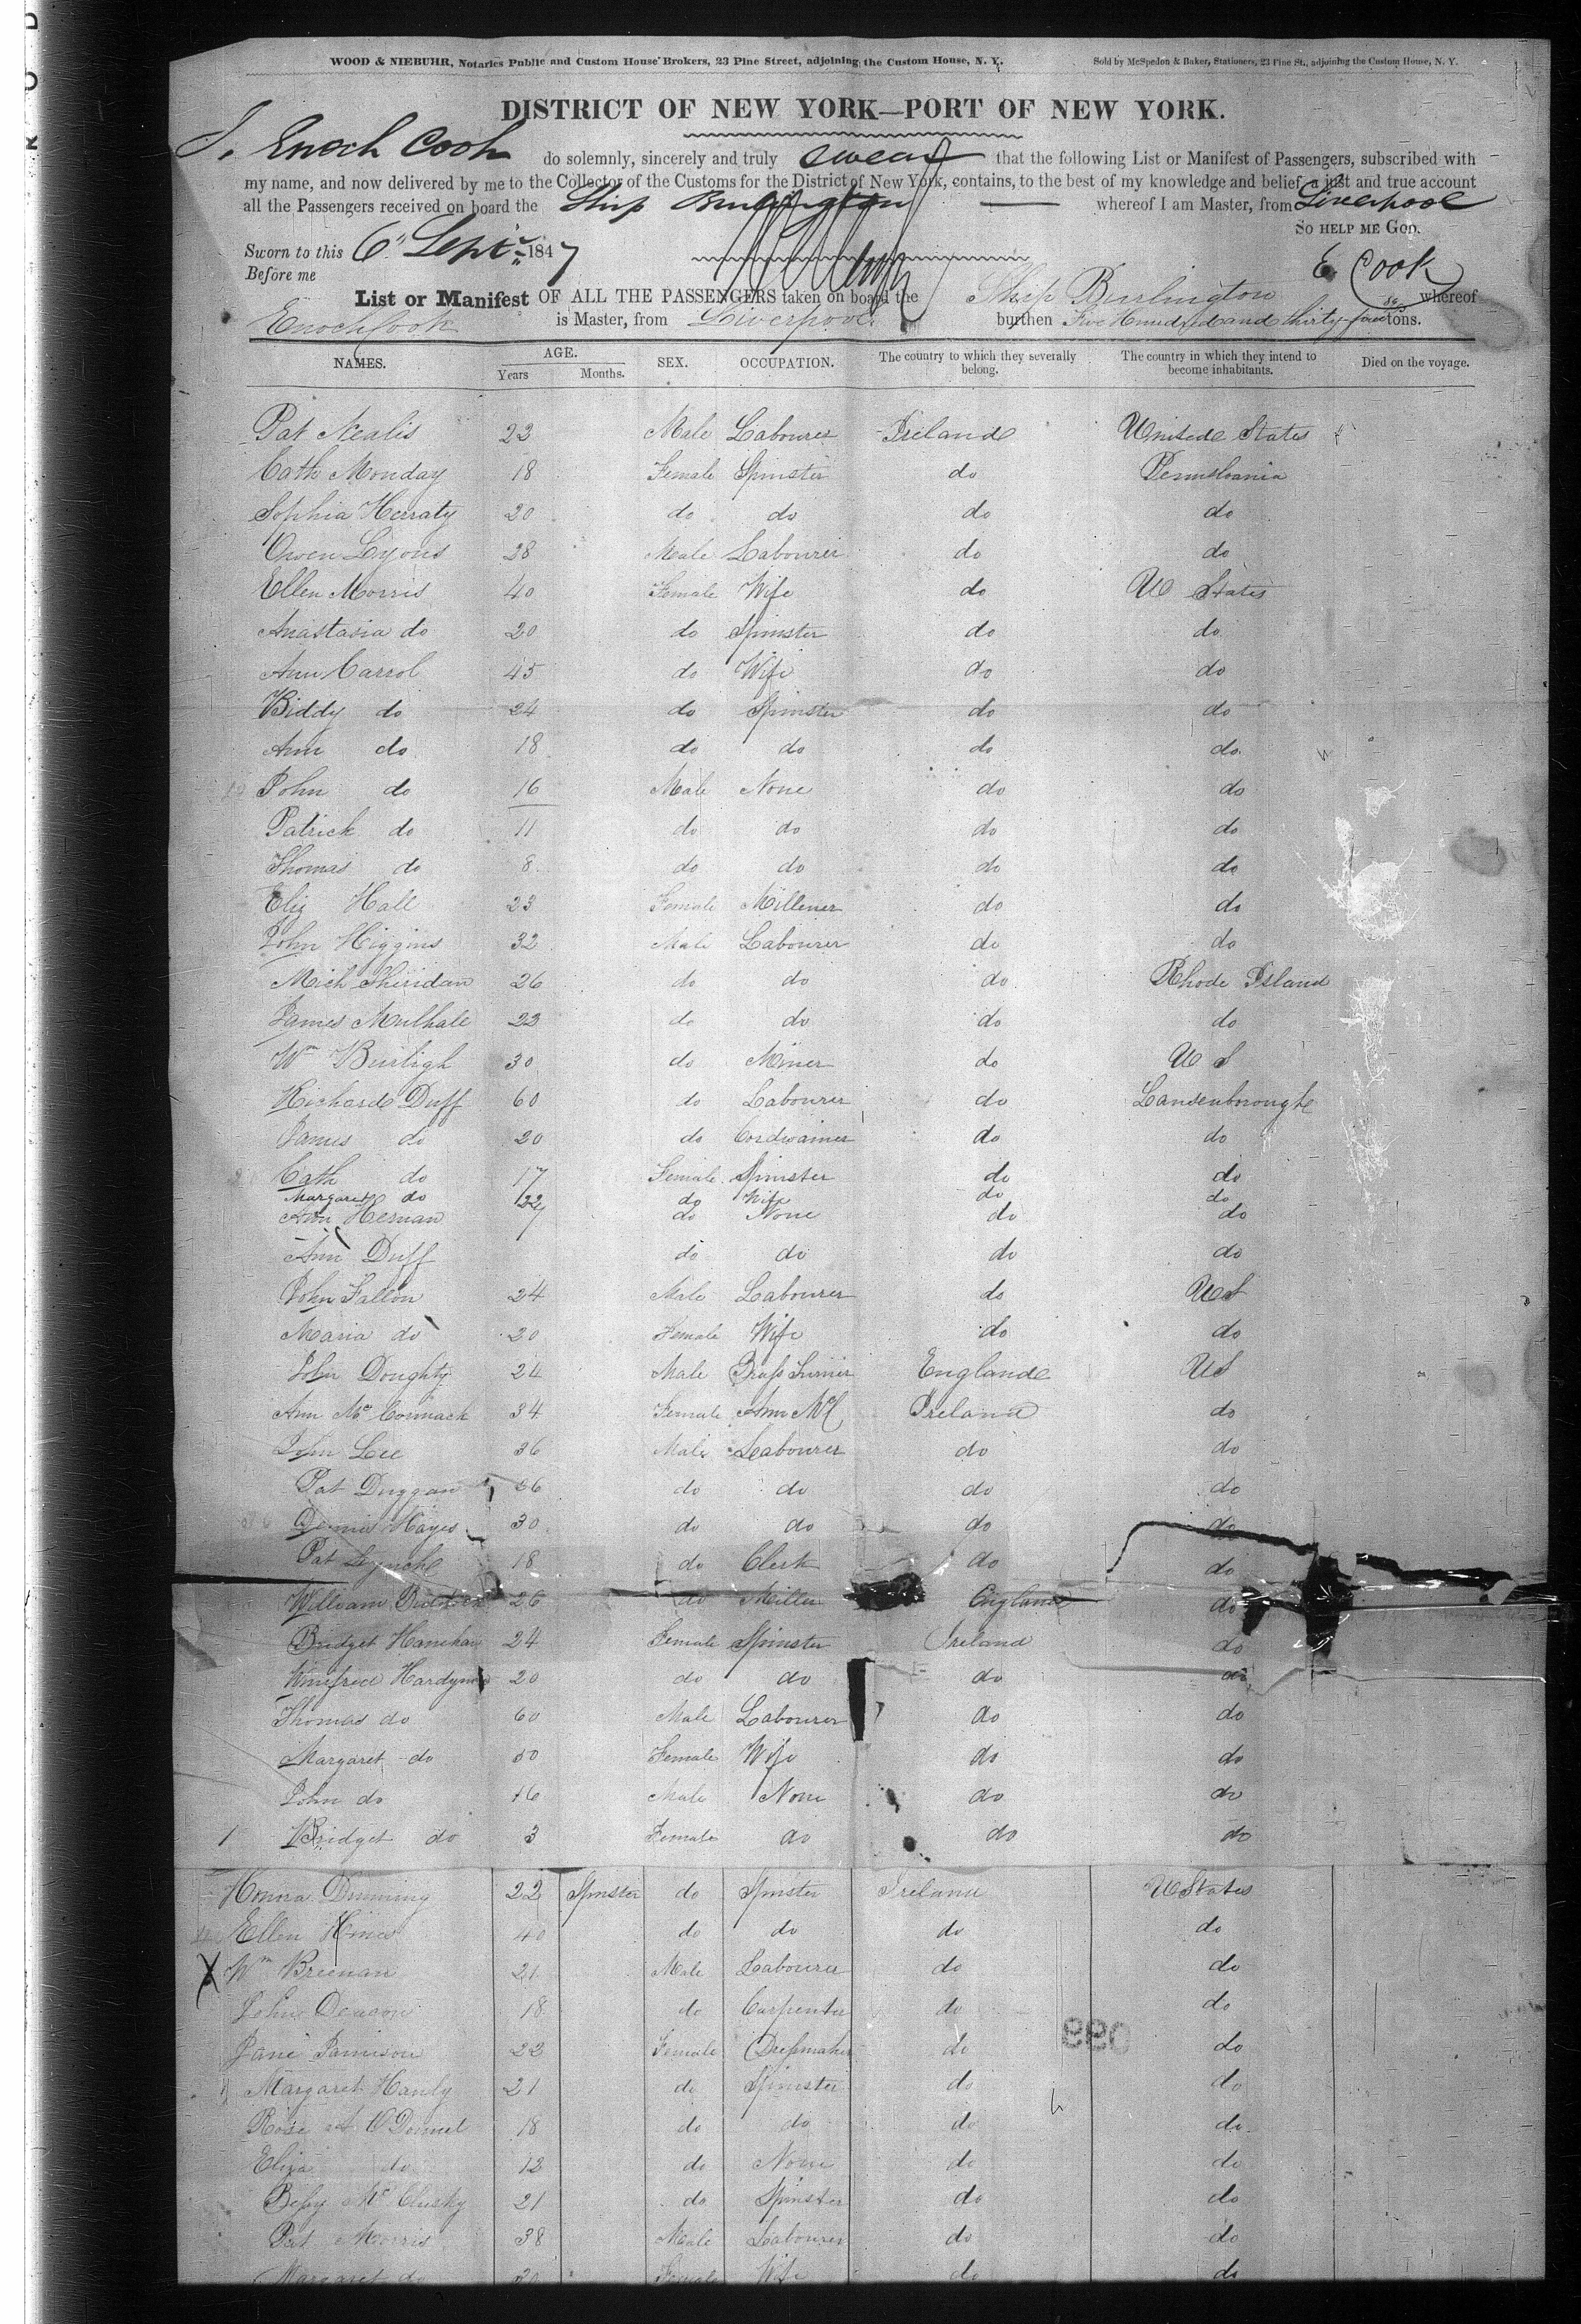 WOOD & NIEBUHR, Notaries Public and Custom House Brokers, 23 Pine Street, adjoining the Custom House, N. Y. Sold by McSpedon & Baker, Stationers, 23 Pine St., adjoining the Custom House, N. Y.
DISTRICT OF NEW YORK—PORT OF NEW YORK.
I, Enoch Cook do solemnly, sincerely and truly swear that the following List or Manifest of Passengers, subscribed with
my name, and now delivered by me to the Collector of the Customs for the District of New York, contains, to the best of my knowledge and belief, a just and true account
all the Passengers received on board the Ship Burlington whereof I am Master, from Liverpool
SO HELP ME GOD.
Sworn to this 6" Septr 1847
Before me
E. Cook
List or Manifest OF ALL THE PASSENGERS taken on board the Ship Burlington whereof
Enoch Cook is Master, from Liverpool burthen Five Hundred and thirty four tons.
NAMES. AGE. Years Months. SEX. OCCUPATION. The country to which they severally belong. The country in which they intend to become inhabitants. Died on the voyage.
Pat Nealis 23 Male Labourer Ireland United States
Cath Monday 18 Female Spinster do Pennslvania
Sophia Herraty 20 do do do do
Owen Lyons 28 Male Labourer do do
Ellen Morris 40 Female Wife do U States
Anastasia do 20 do Spinster do do
Ann Carrol 45 do Wife do do
Biddy do 24 do Spinster do do
Ann do 18 do do do do
John do 16 Male None do do
Patrick do 11 do do do do
Thomas do 8 do do do do
Eliz Hall 23 Female Millener do do
John Higgins 32 Male Labourer do do
Mich Sheridan 26 do do do Rhode Island
James Mulhall 23 do do do do
Wm Burligh 30 do Miner do U S
Richard Duff 60 do Labourer do Lansenborough
James do 20 do Cordwainer do do
Cath do 17 Female Spinster do do
Margaret do 22 do Wife do do
Ann Hernan do None do do
Ann Duff do do do do
John Fallon 24 Male Labourer do US
Maria do 20 Female Wife do do
John Doughty 24 Male Brass Turner England US
Ann Mc Cormack 34 Female Ann Mc Ireland do
John Lee 36 Male Labourer do do
Pat Duggan 36 do do do do
Dennis Hayes 30 do do do do
Pat Lynch 18 do Clerk do do
William 26 do Miller England do
Bridget Hanehan 24 Female Spinster Ireland do
Winefred Hardyman 20 do do do do
Thomas do 60 Male Labourer do do
Margaret do 50 Female Wife do do
John do 16 Male None do do
1 Bridget do 3 Female do do do
Honora Dunning 22 Spinster do Spinster Ireland U States
Ellen Hines 40 do do do do
X Wm Breenan 21 Male Labourer do do
John Deacon 18 do Carpenter do do
Jane Jamison 22 Female Dressmaker do do
Margaret Hanly 21 do Spinster do do
Rose O'Donnel 18 do do do do
Eliza do 12 do None do do
Bessy Mc Clusky 21 do Spinster do do
Pat Morris 38 Male Labourer do do
Margaret do 30 Female Wife do do